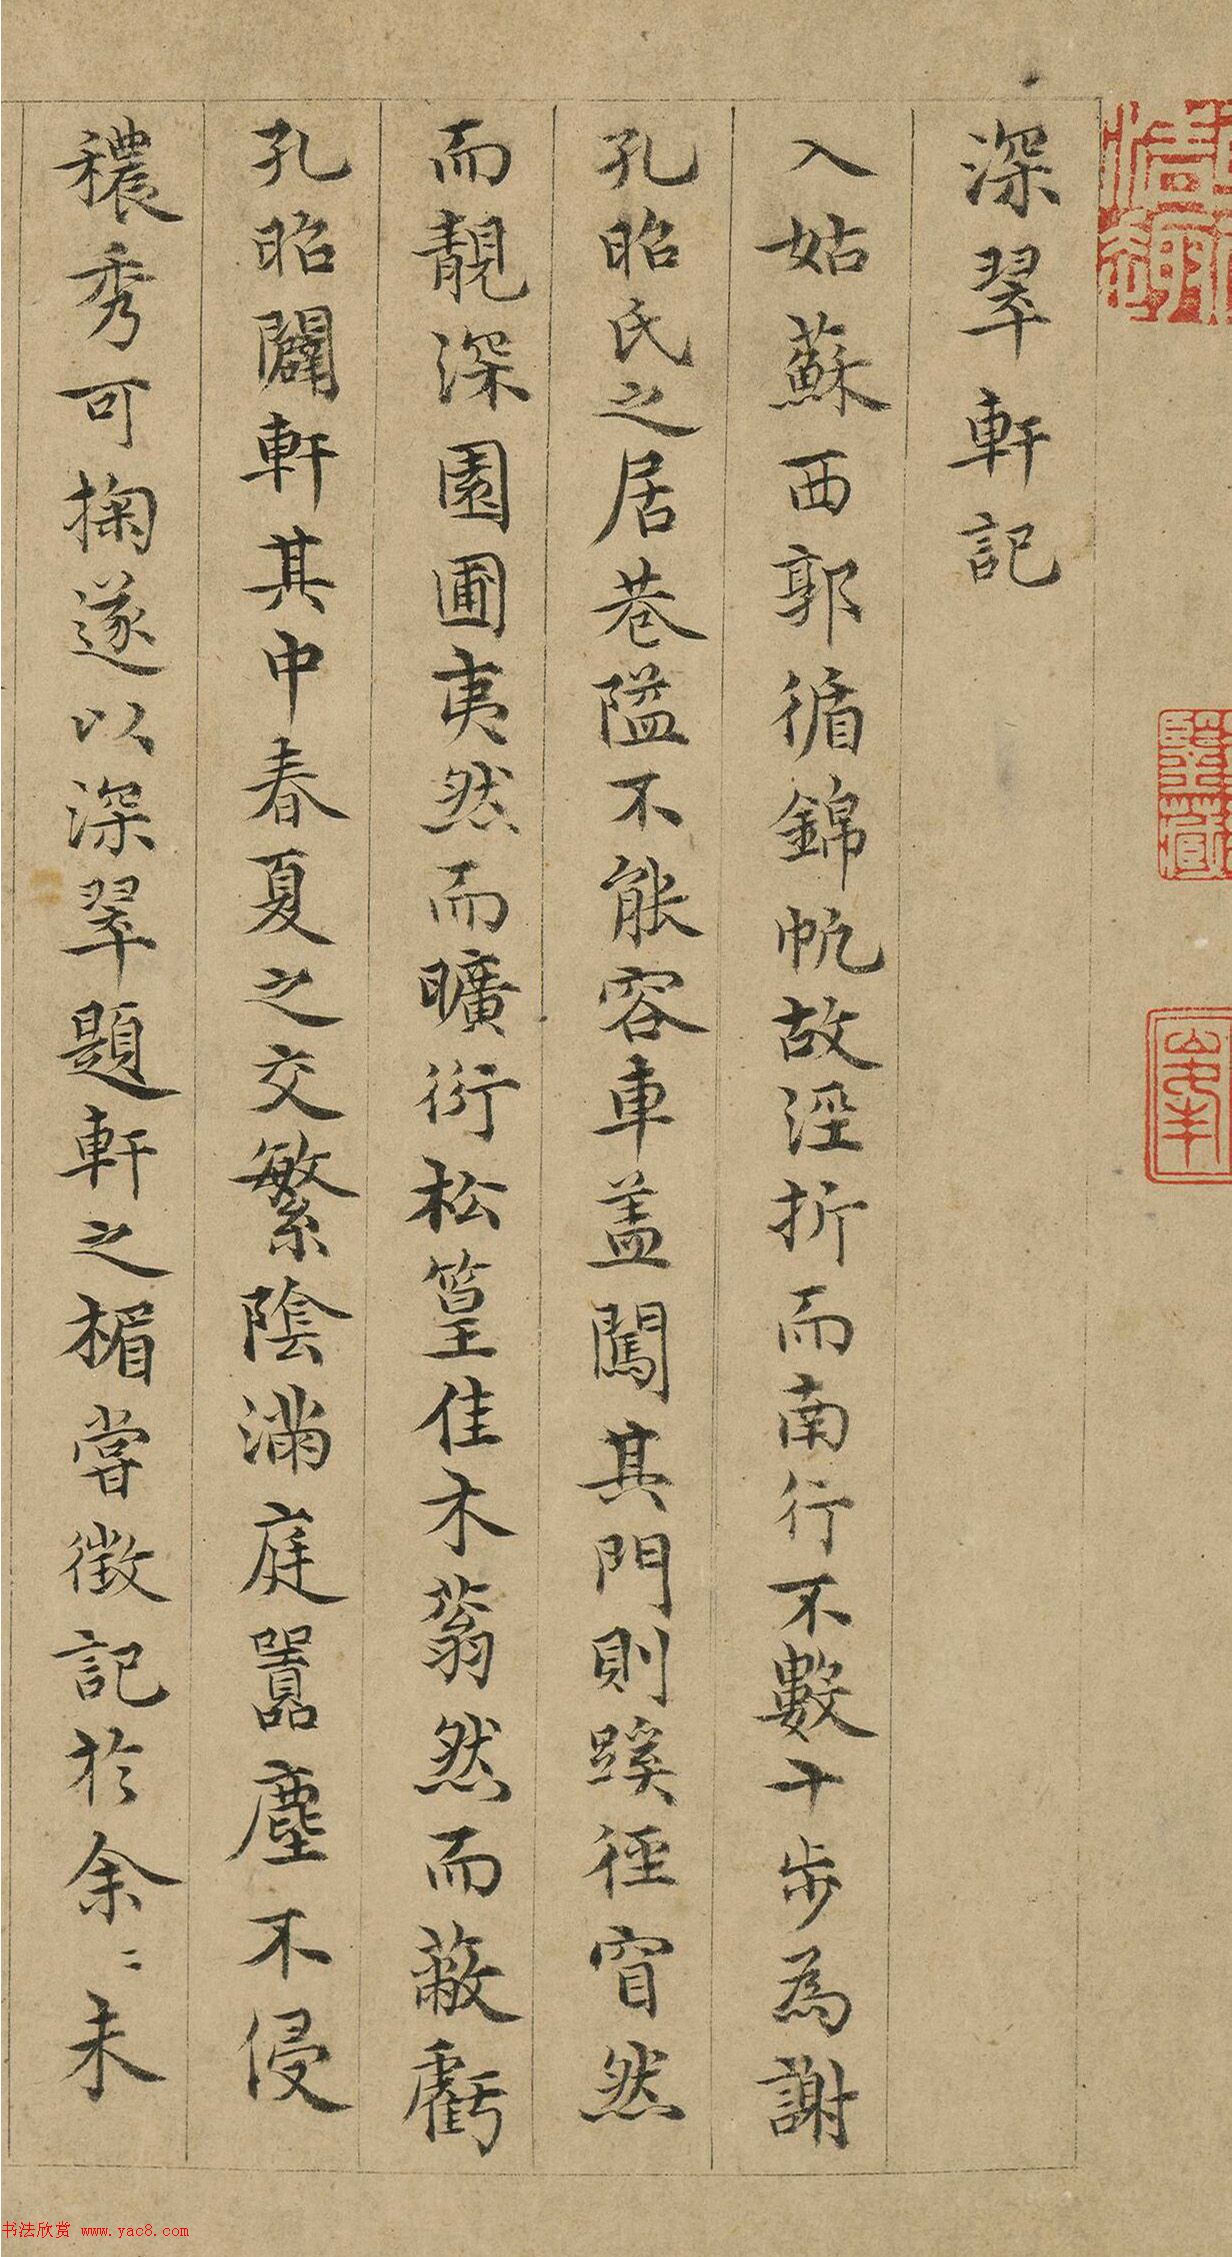 深翠軒記
入姑蘇西郭循錦帆故涇折而南行不數十步為謝
孔昭氏之居巷隘不能容車盖闖其門則蹊徑窅然
而靚深園圃夷然而曠衍松篁佳木蓊然而蔽虧
孔昭闢軒其中春夏之交繁陰滿庭囂塵不侵
穠秀可掬遂以深翠題軒之楣嘗徵記於余〻未
书法欣赏 www.yac8.com